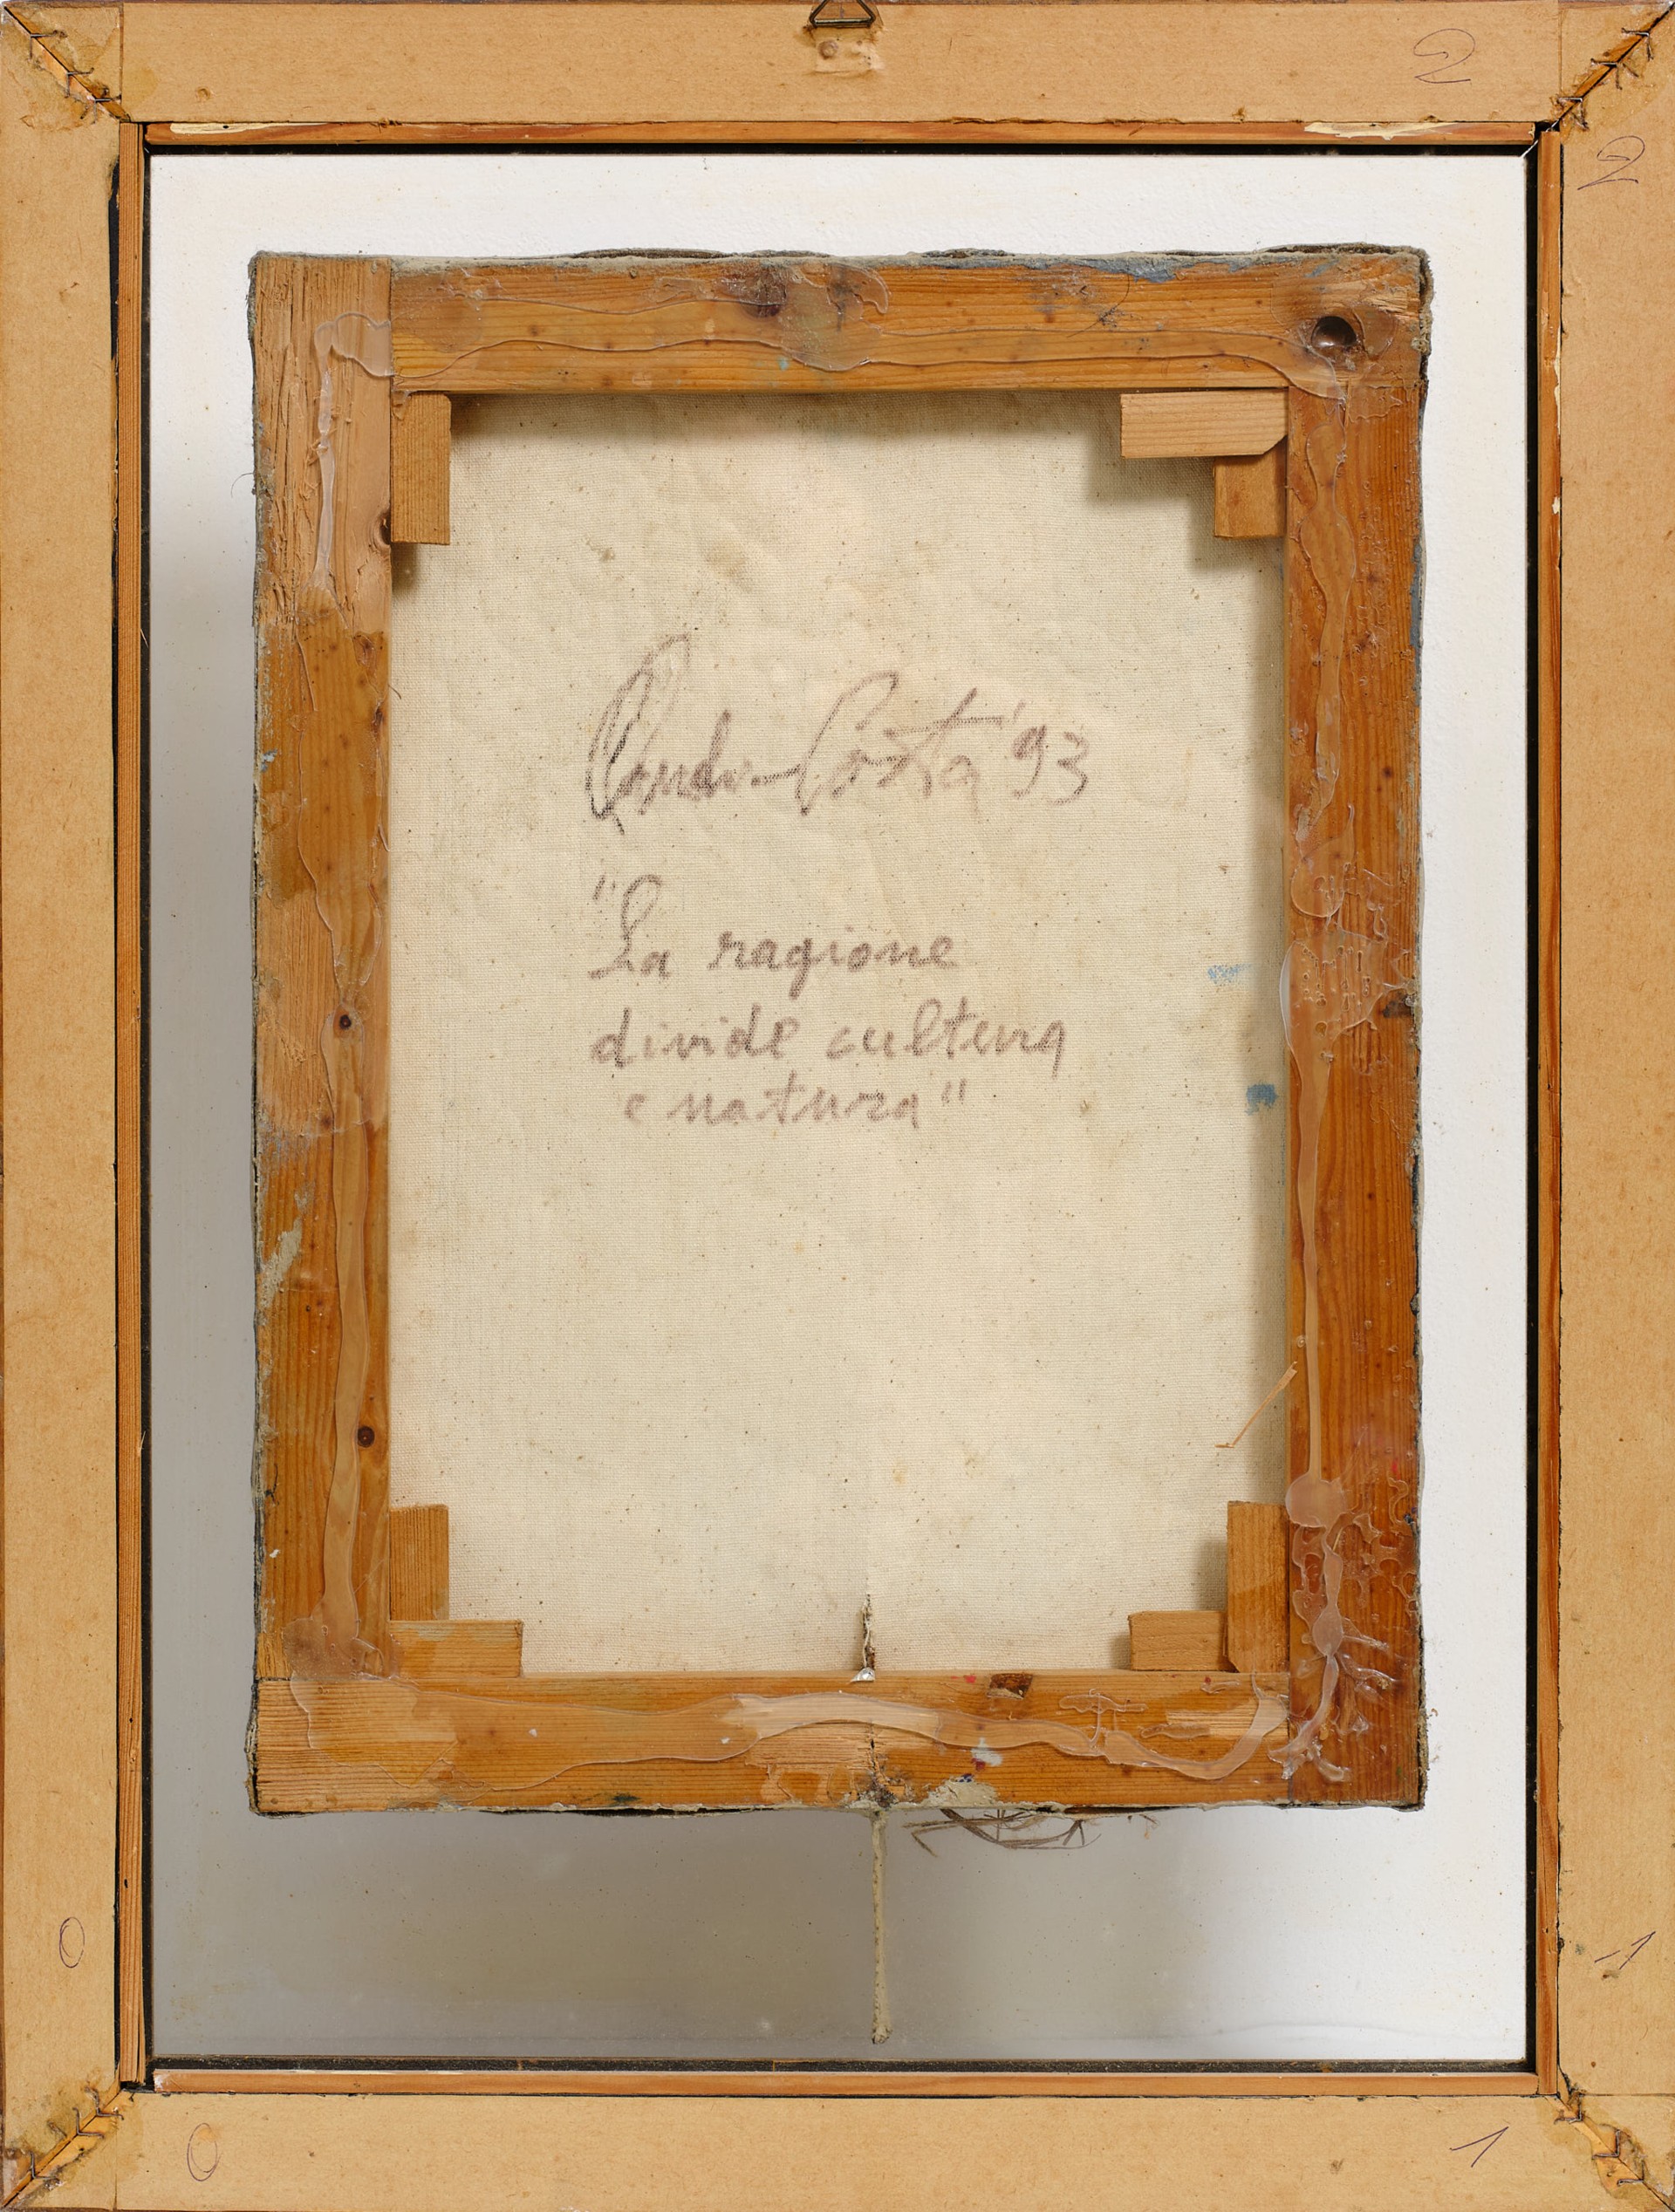 2
2
Claudio Costa '93
"La ragione
divide cultura
e natura"
0
1
0
1